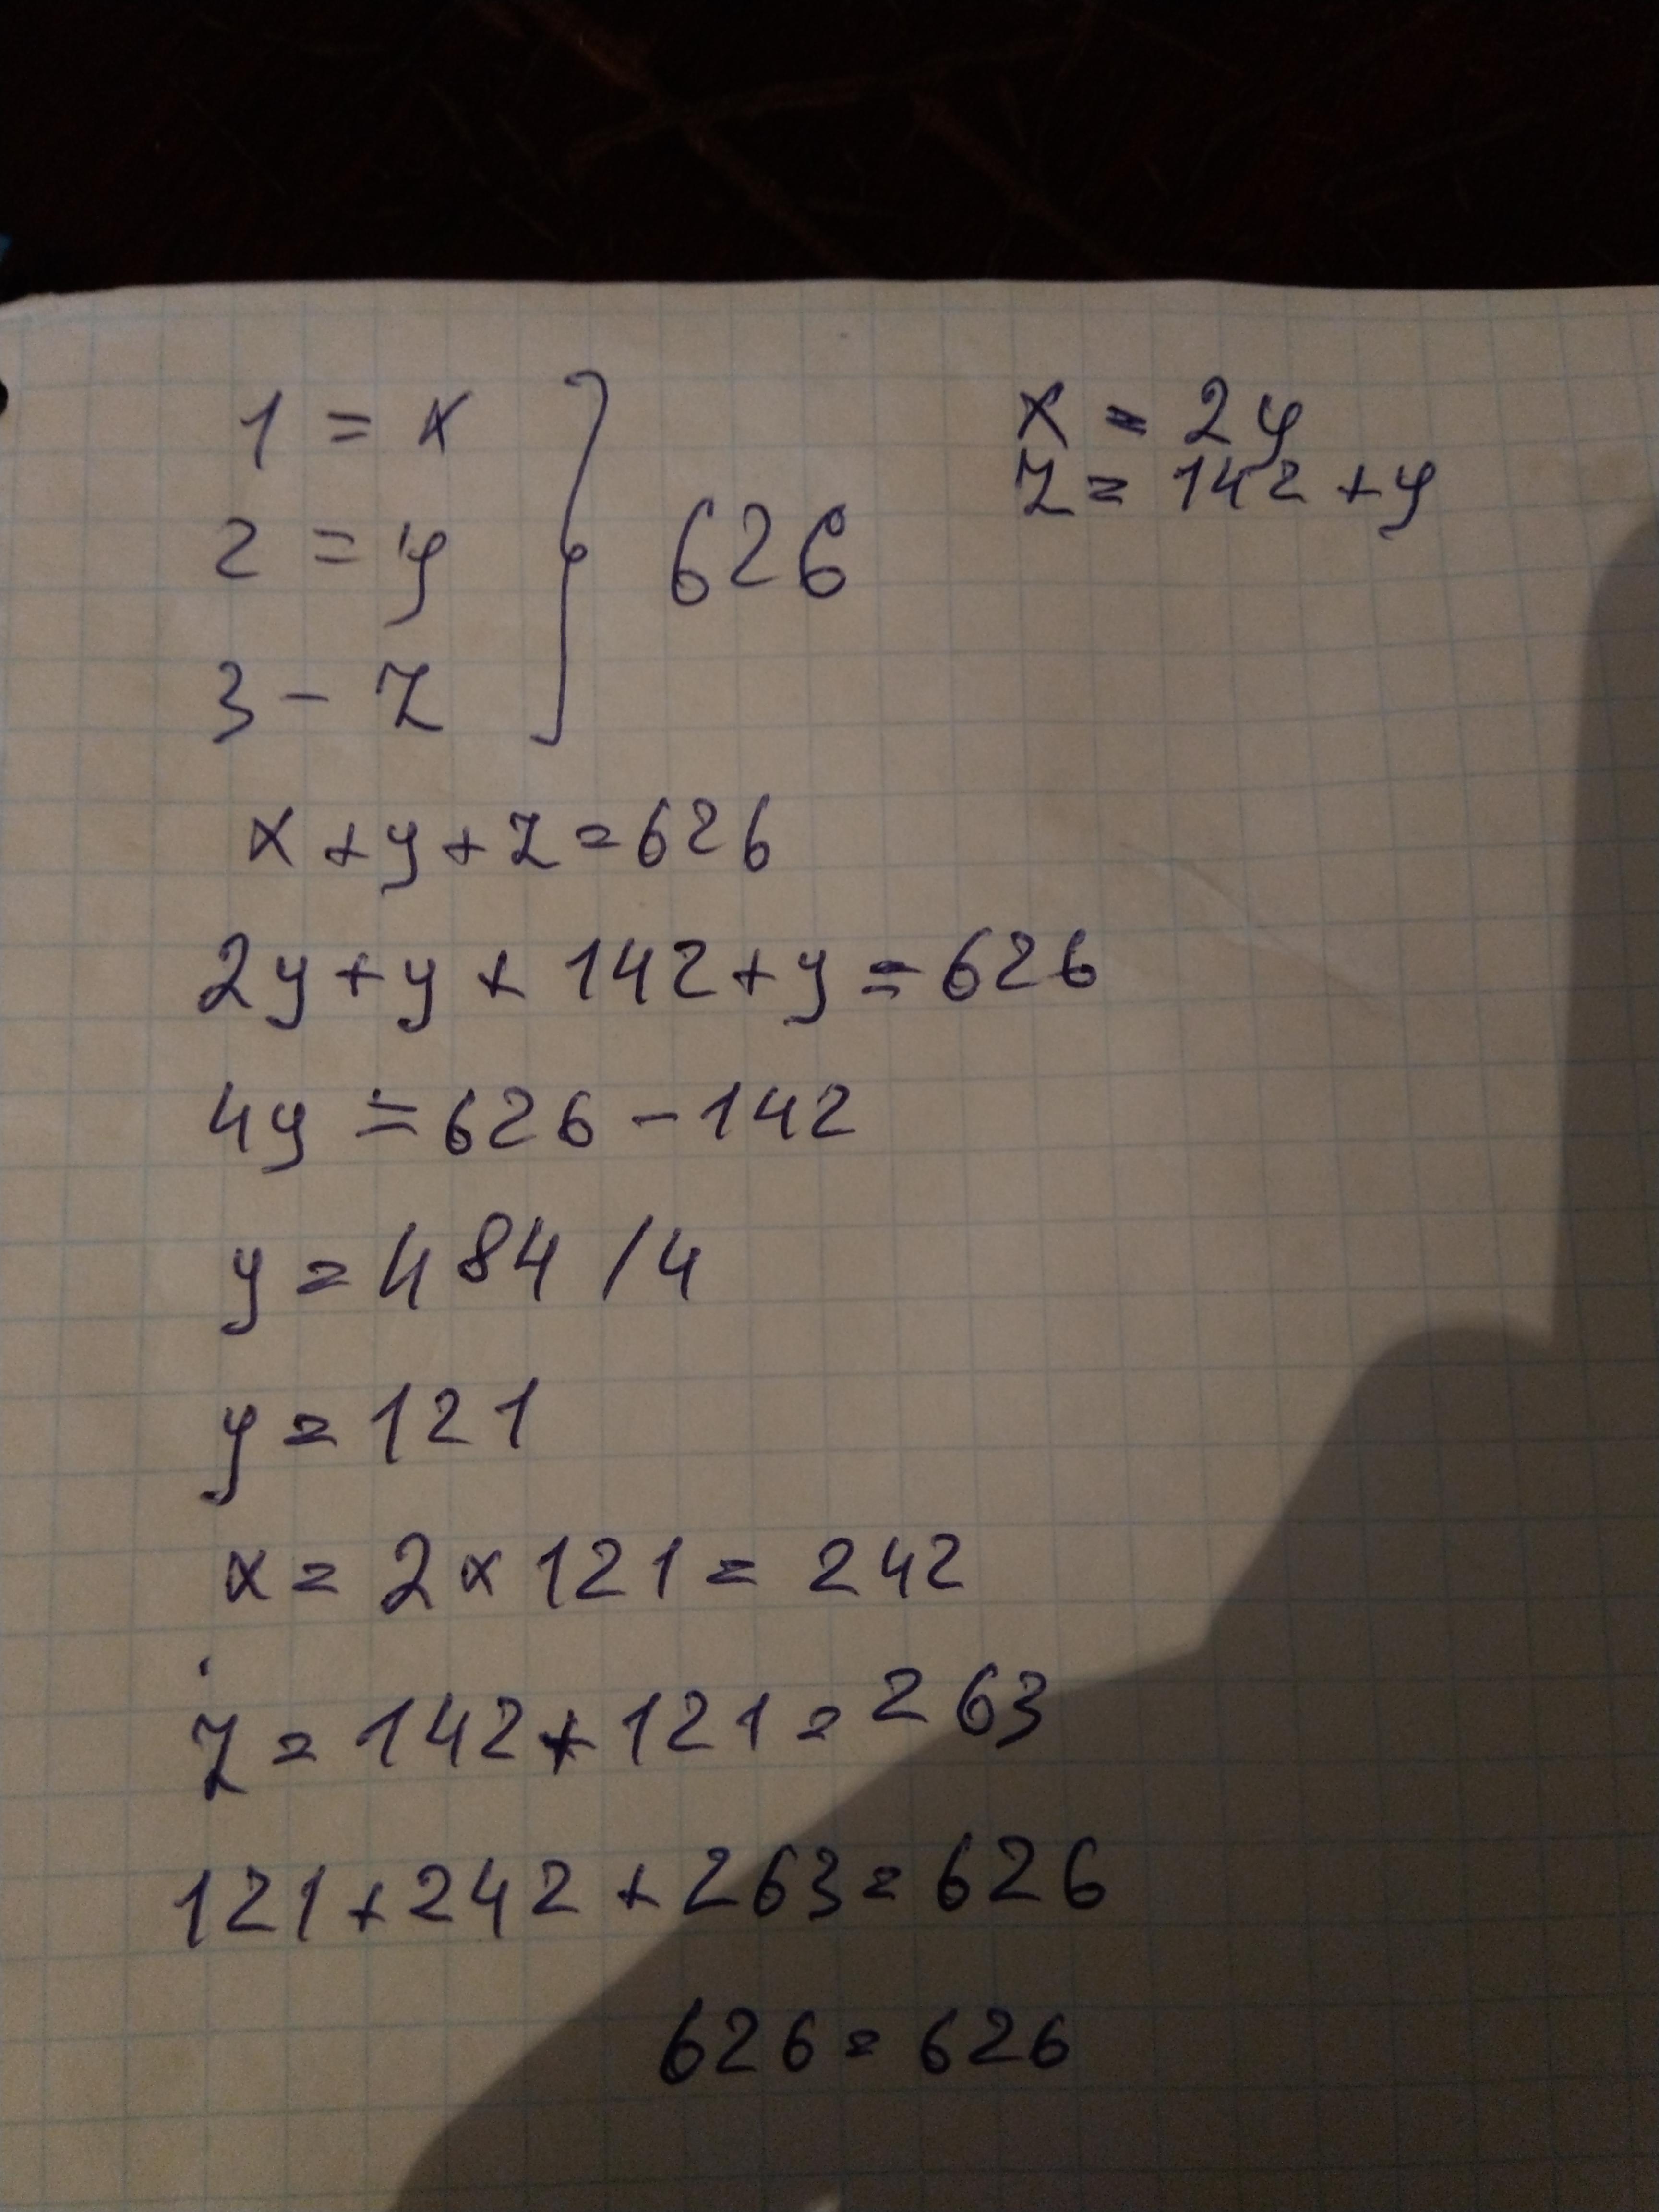 1 = x
2 = y } 626
3 - z
x = 2y
z = 142 + y
x + y + z = 626
2y + y + 142 + y = 626
4y = 626 - 142
y = 484 / 4
y = 121
x = 2 x 121 = 242
z = 142 + 121 = 263
121 + 242 + 263 = 626
626 = 626